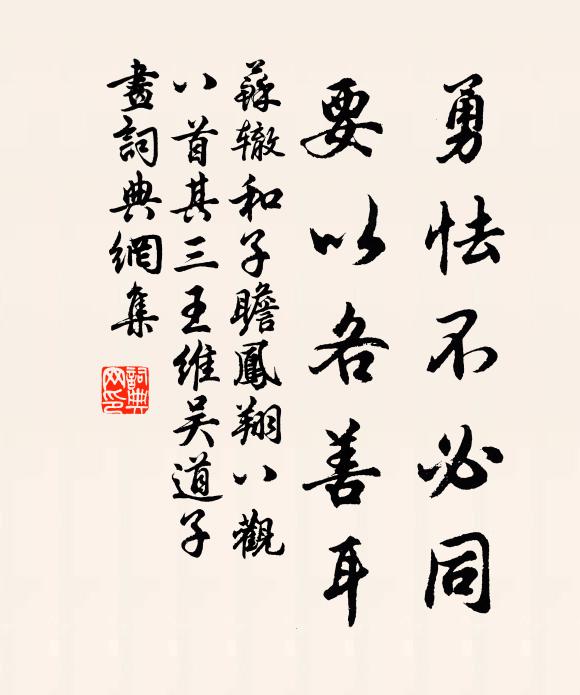 勇怯不必同
要以各善耳
蘇辙和子瞻鳳翔八觀
八首其三王維吴道子
畫詞典網集
詞典
网印